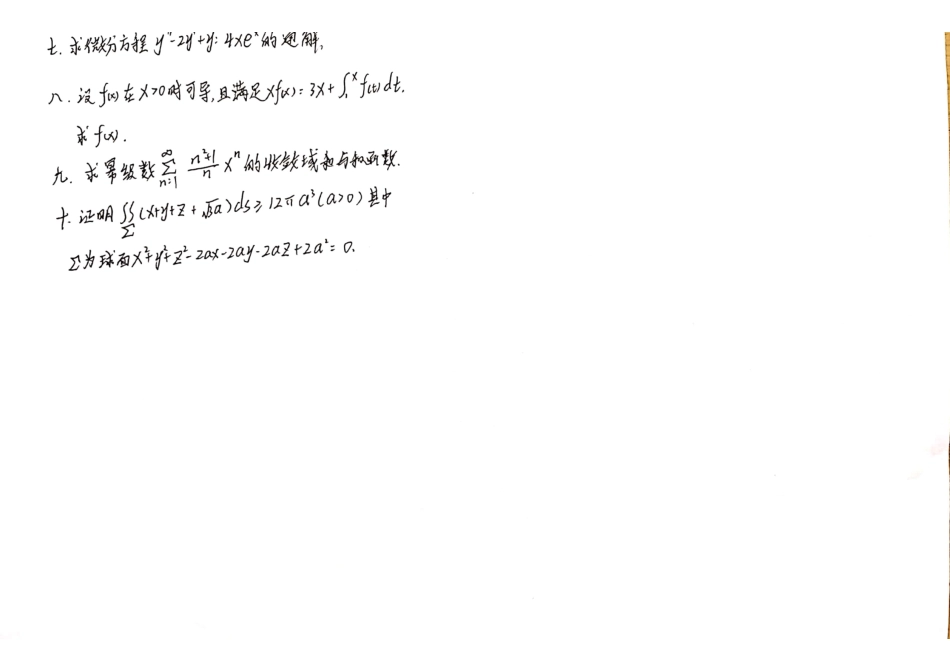 七. 求微分方程 y''-2y'+y=4xeˣ的通解,
八. 设f(x)在x>0时可导,且满足xf(x)=3x+∫₁ˣf(t)dt.
求f(x).
九. 求幂级数∑_{n=1}^{∞} (n²+1)/n xⁿ的收敛域和与和函数.
十. 证明∬_Σ(x+y+z+√3a)ds≥12πa³(a>0)其中
Σ为球面x²+y²+z²-2ax-2ay-2az+2a²=0.